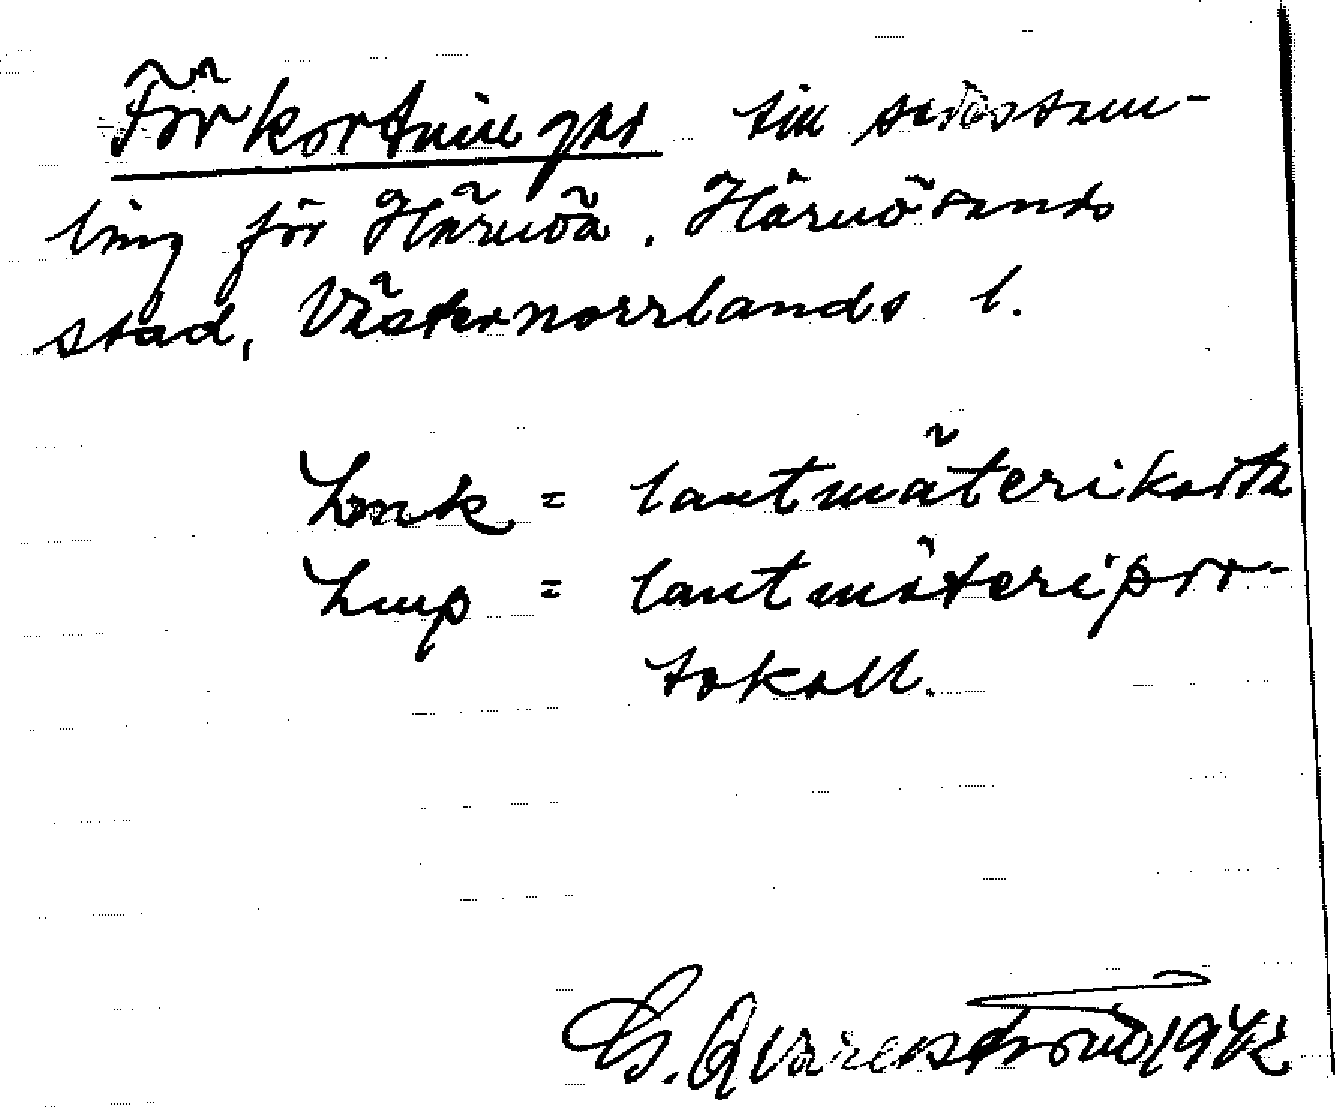 Förkortningar till avskriftssam-
ling för Härnön. Härnösands
stad, Västernorrlands l.
Lmk = lantmäterikarta
Lmp = lantmäteripro-
tokoll.
G. Qvarnström 1942